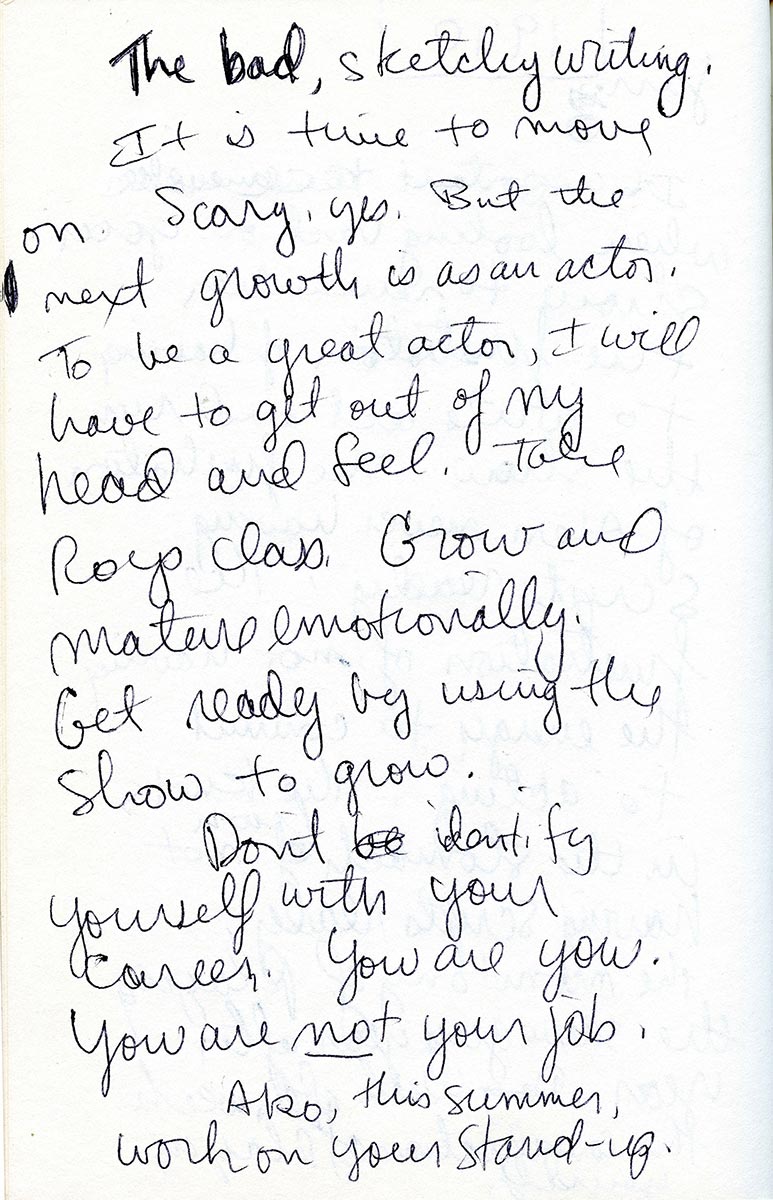 The bad, sketchy writing.
It is time to move
on Scary, yes. But the
next growth is as an actor.
To be a great actor, I will
have to get out of my
head and feel. Take
Roys class. Grow and
mature emotionally.
Get ready by using the
show to grow.
Dont be identify
yourself with your
career. You are you.
You are not your job.
Also, this summer,
work on your stand-up.